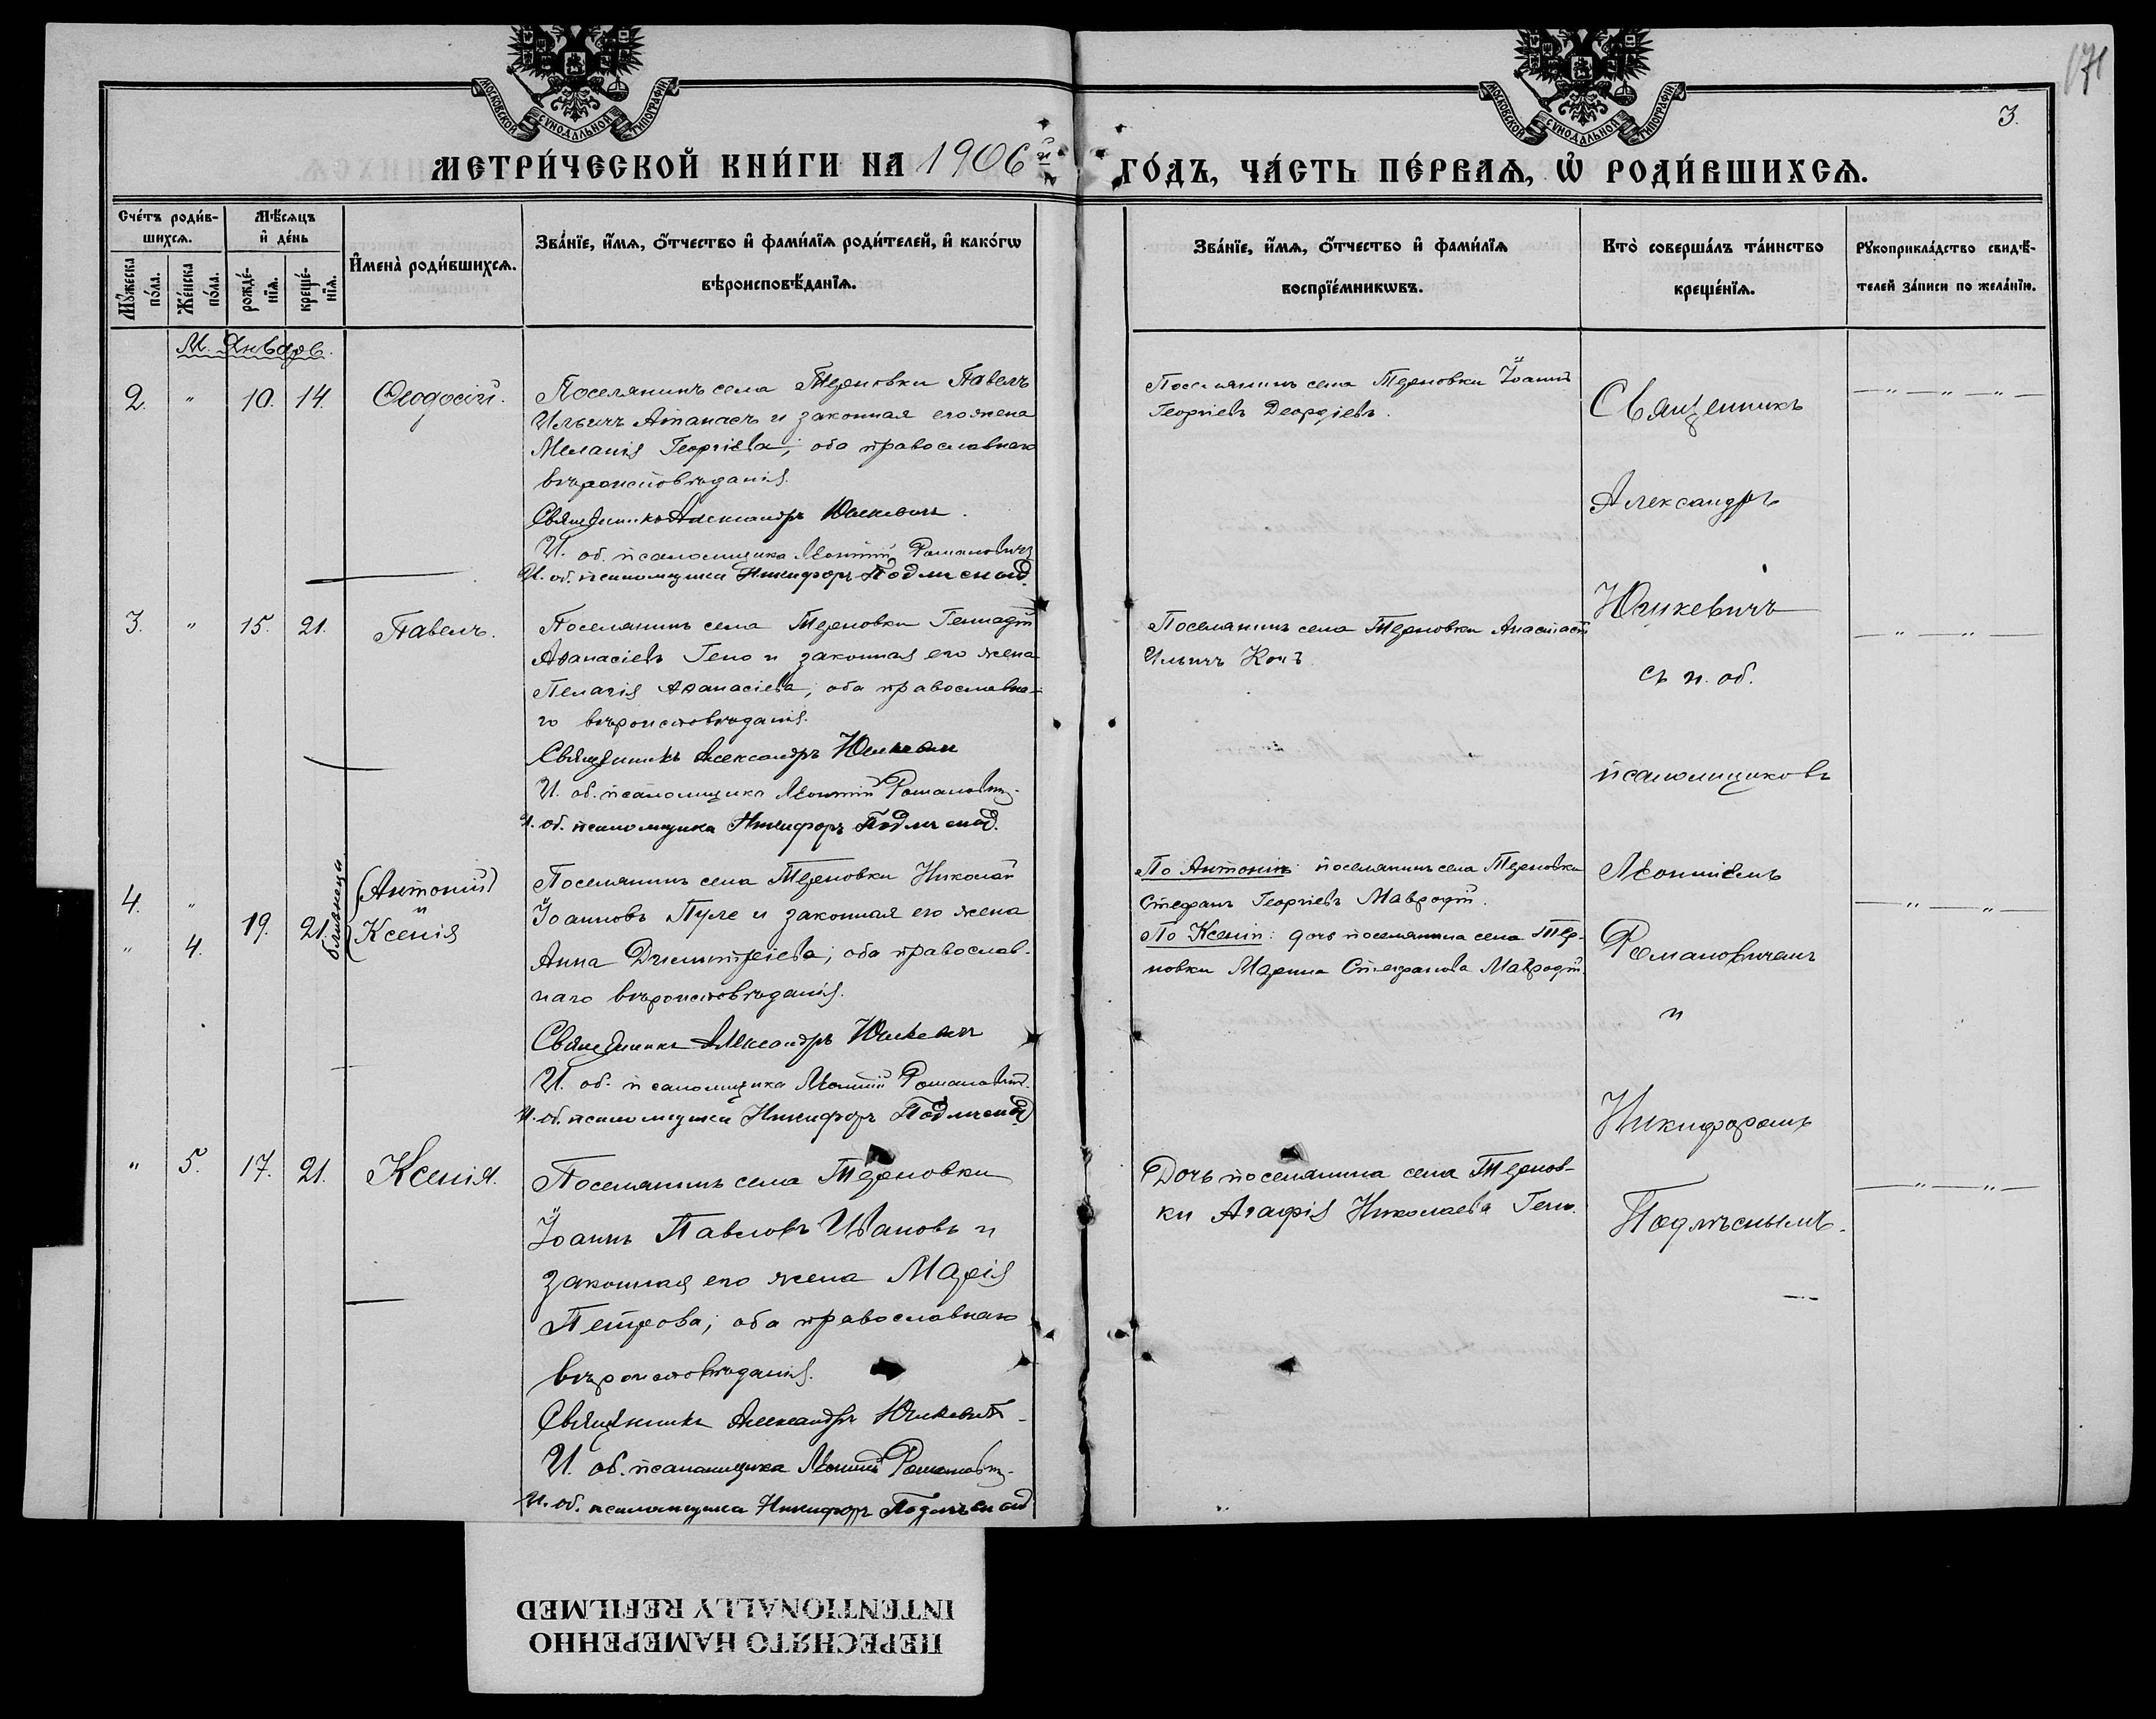 171
3.
МОСКОВСКОЙ СѴНОДАЛЬНОЙ ТИПОГРАФІИ
МОСКОВСКОЙ СѴНОДАЛЬНОЙ ТИПОГРАФІИ
МЕТРИ́ЧЕСКОЙ КНИ́ГИ НА 1906й ГО́ДЪ, ЧА́СТЬ ПЕ́РВАѦ, Ѡ҆ РОДИ́ВШИХСѦ.
Сче́тъ роди́в-
шихсѧ.
Мꙋ́жеска
по́ла.
Же́нска
по́ла.
Мѣ́сѧцъ
и҆ де́нь
рожде́-
нїѧ.
креще́-
нїѧ.
И҆мена̀ роди́вшихсѧ.
Зва́нїе, и҆́мѧ, ѻ҆́тчество и҆ фами́лїѧ роди́телей, и҆ како́гѡ
вѣроисповѣ́данїѧ.
Зва́нїе, и҆́мѧ, ѻ҆́тчество и҆ фами́лїѧ
воспрїе́мникѡвъ.
Кто̀ соверша́лъ та́инство
креще́нїѧ.
Рꙋкоприкла́дство свидѣ́-
телей за́писи по жела́нїю.
М. Январь.
2. " 10. 14. Ѳеодосій.
Поселянинъ села Терновки Павелъ
Ильичъ Атанасъ и законная его жена
Меланія Георгіева; оба православнаго
вѣроисповѣданія.
Священникъ Александръ Юшкевичъ.
И. об. псаломщика Леонтій Романовичъ
И. об. псаломщика Никифоръ Подлѣсный.
Поселянинъ села Терновки Іоаннъ
Георгіевъ Деордіевъ.
3. " 15. 21. Павелъ.
Поселянинъ села Терновки Геннадій
Аѳанасіевъ Гено и законная его жена
Пелагія Аѳанасіева; оба православна-
го вѣроисповѣданія.
Священникъ Александръ Юшкевичъ
И. об. псаломщика Леонтій Романовичъ.
И. об. псаломщика Никифоръ Подлѣсный.
Поселянинъ села Терновки Анастасій
Ильичъ Кочъ
4. "
" 4.
19. 21.
близнецы
(Антоній)
и
Ксенія
Поселянинъ села Терновки Николай
Іоанновъ Пуле и законная его жена
Анна Димитріева; оба православ-
наго вѣроисповѣданія.
Священникъ Александръ Юшкевичъ
И. об. псаломщика Леонтій Романовичъ.
И. об. псаломщика Никифоръ Подлѣсный
По Антоніи: поселянинъ села Терновки
Стефанъ Георгіевъ Мавродій.
По Ксеніи: дочь поселянина села Тер-
новки Марина Стефанова Мавродій.
" 5. 17. 21. Ксенія.
Поселянинъ села Терновки
Іоаннъ Павловъ Ивановъ и
законная его жена Марія
Петрова; оба православнаго
вѣроисповѣданія.
Священникъ Александръ Юшкевичъ
И. об. псаломщика Леонтій Романовичъ.
И. об. псаломщика Никифоръ Подлѣсный
Дочь поселянина села Тернов-
ки Агафія Николаева Гено.
Священникъ
Александръ
Юшкевичъ
съ и. об.
псаломщиковъ
Леонтіемъ
Романовичемъ
и
Никифоромъ
Подлѣснымъ.
ПЕРЕСНЯТО НАМЕРЕННО
INTENTIONALLY REFILMED